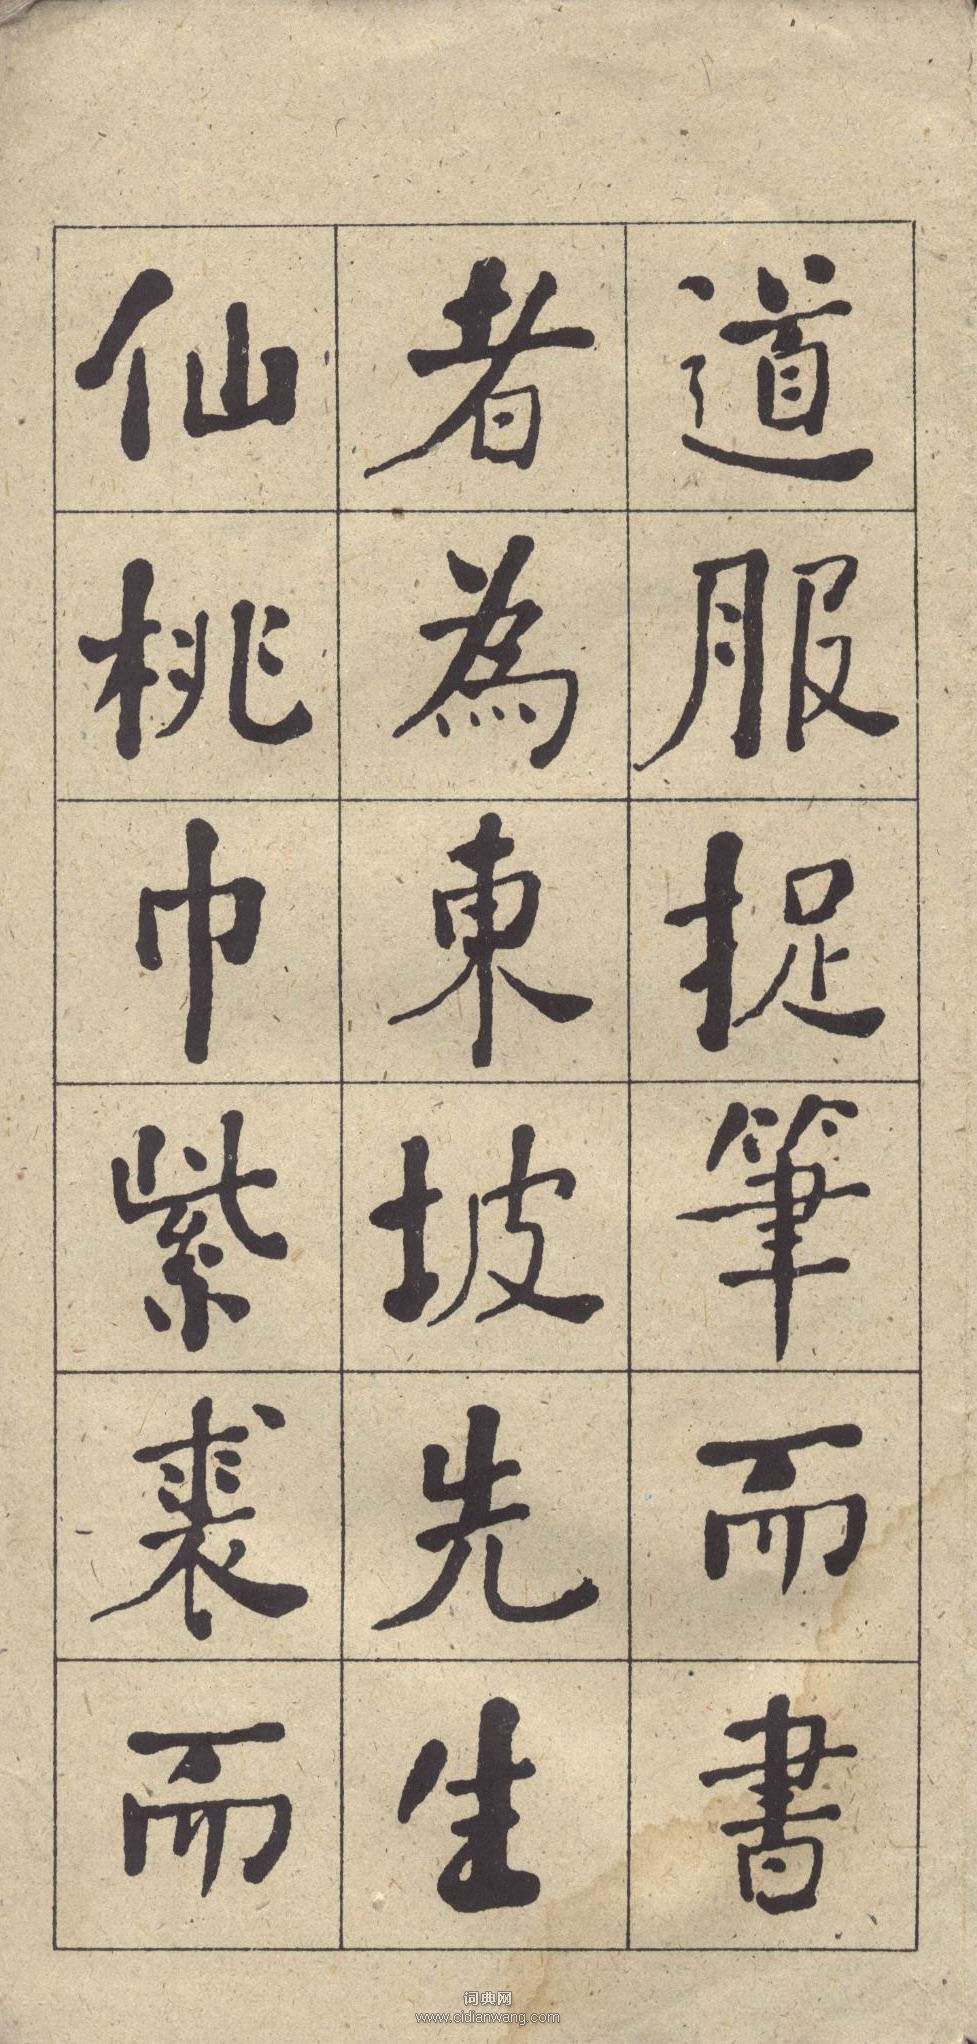 道服捉筆而書
者為東坡先生
仙桃巾紫裘而
词典网
www.cidianwang.com